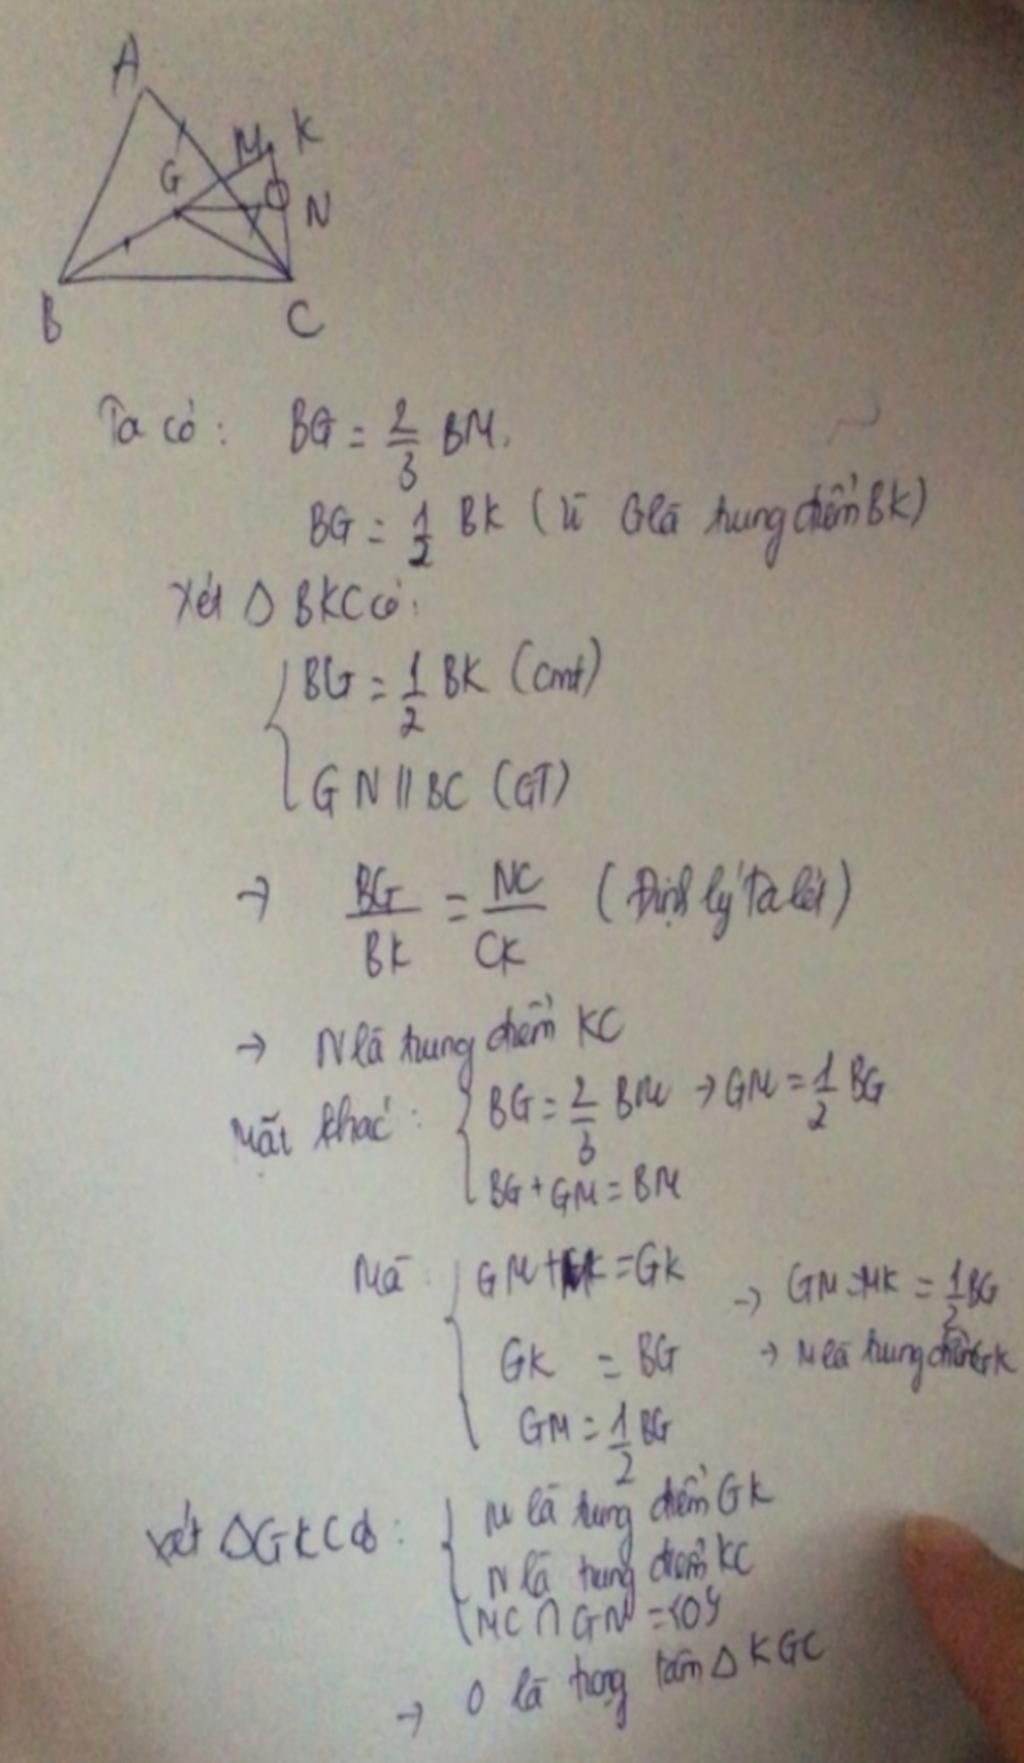 A
M K
G
N
B C
Ta có: BG = 2/3 BM.
BG = 1/2 BK (Vì G là trung điểm BK)
Xét Δ BKC có:
BG = 1/2 BK (cmt)
GN // BC (GT)
→ BG/BK = NC/CK (Định lý Ta lét)
→ N là trung điểm KC
Mặt khác: BG = 2/3 BM → GM = 1/2 BG
BG + GM = BM
Mà: GM + MK = GK → GM = MK = 1/2 BG
GK = BG → M là trung điểm GK
GM = 1/2 BG
Xét ΔGKC có: M là trung điểm GK
N là trung điểm KC
MC ∩ GN = {O}
→ O là trọng tâm Δ KGC